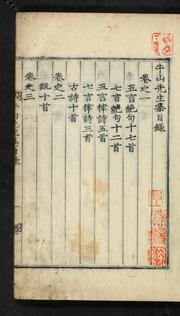 牛山先生集目錄
卷之一
五言絶句十七首
七言絶句十二首
五言律詩五首
七言律詩三首
古詩十首
卷之二
疏十首
卷之三